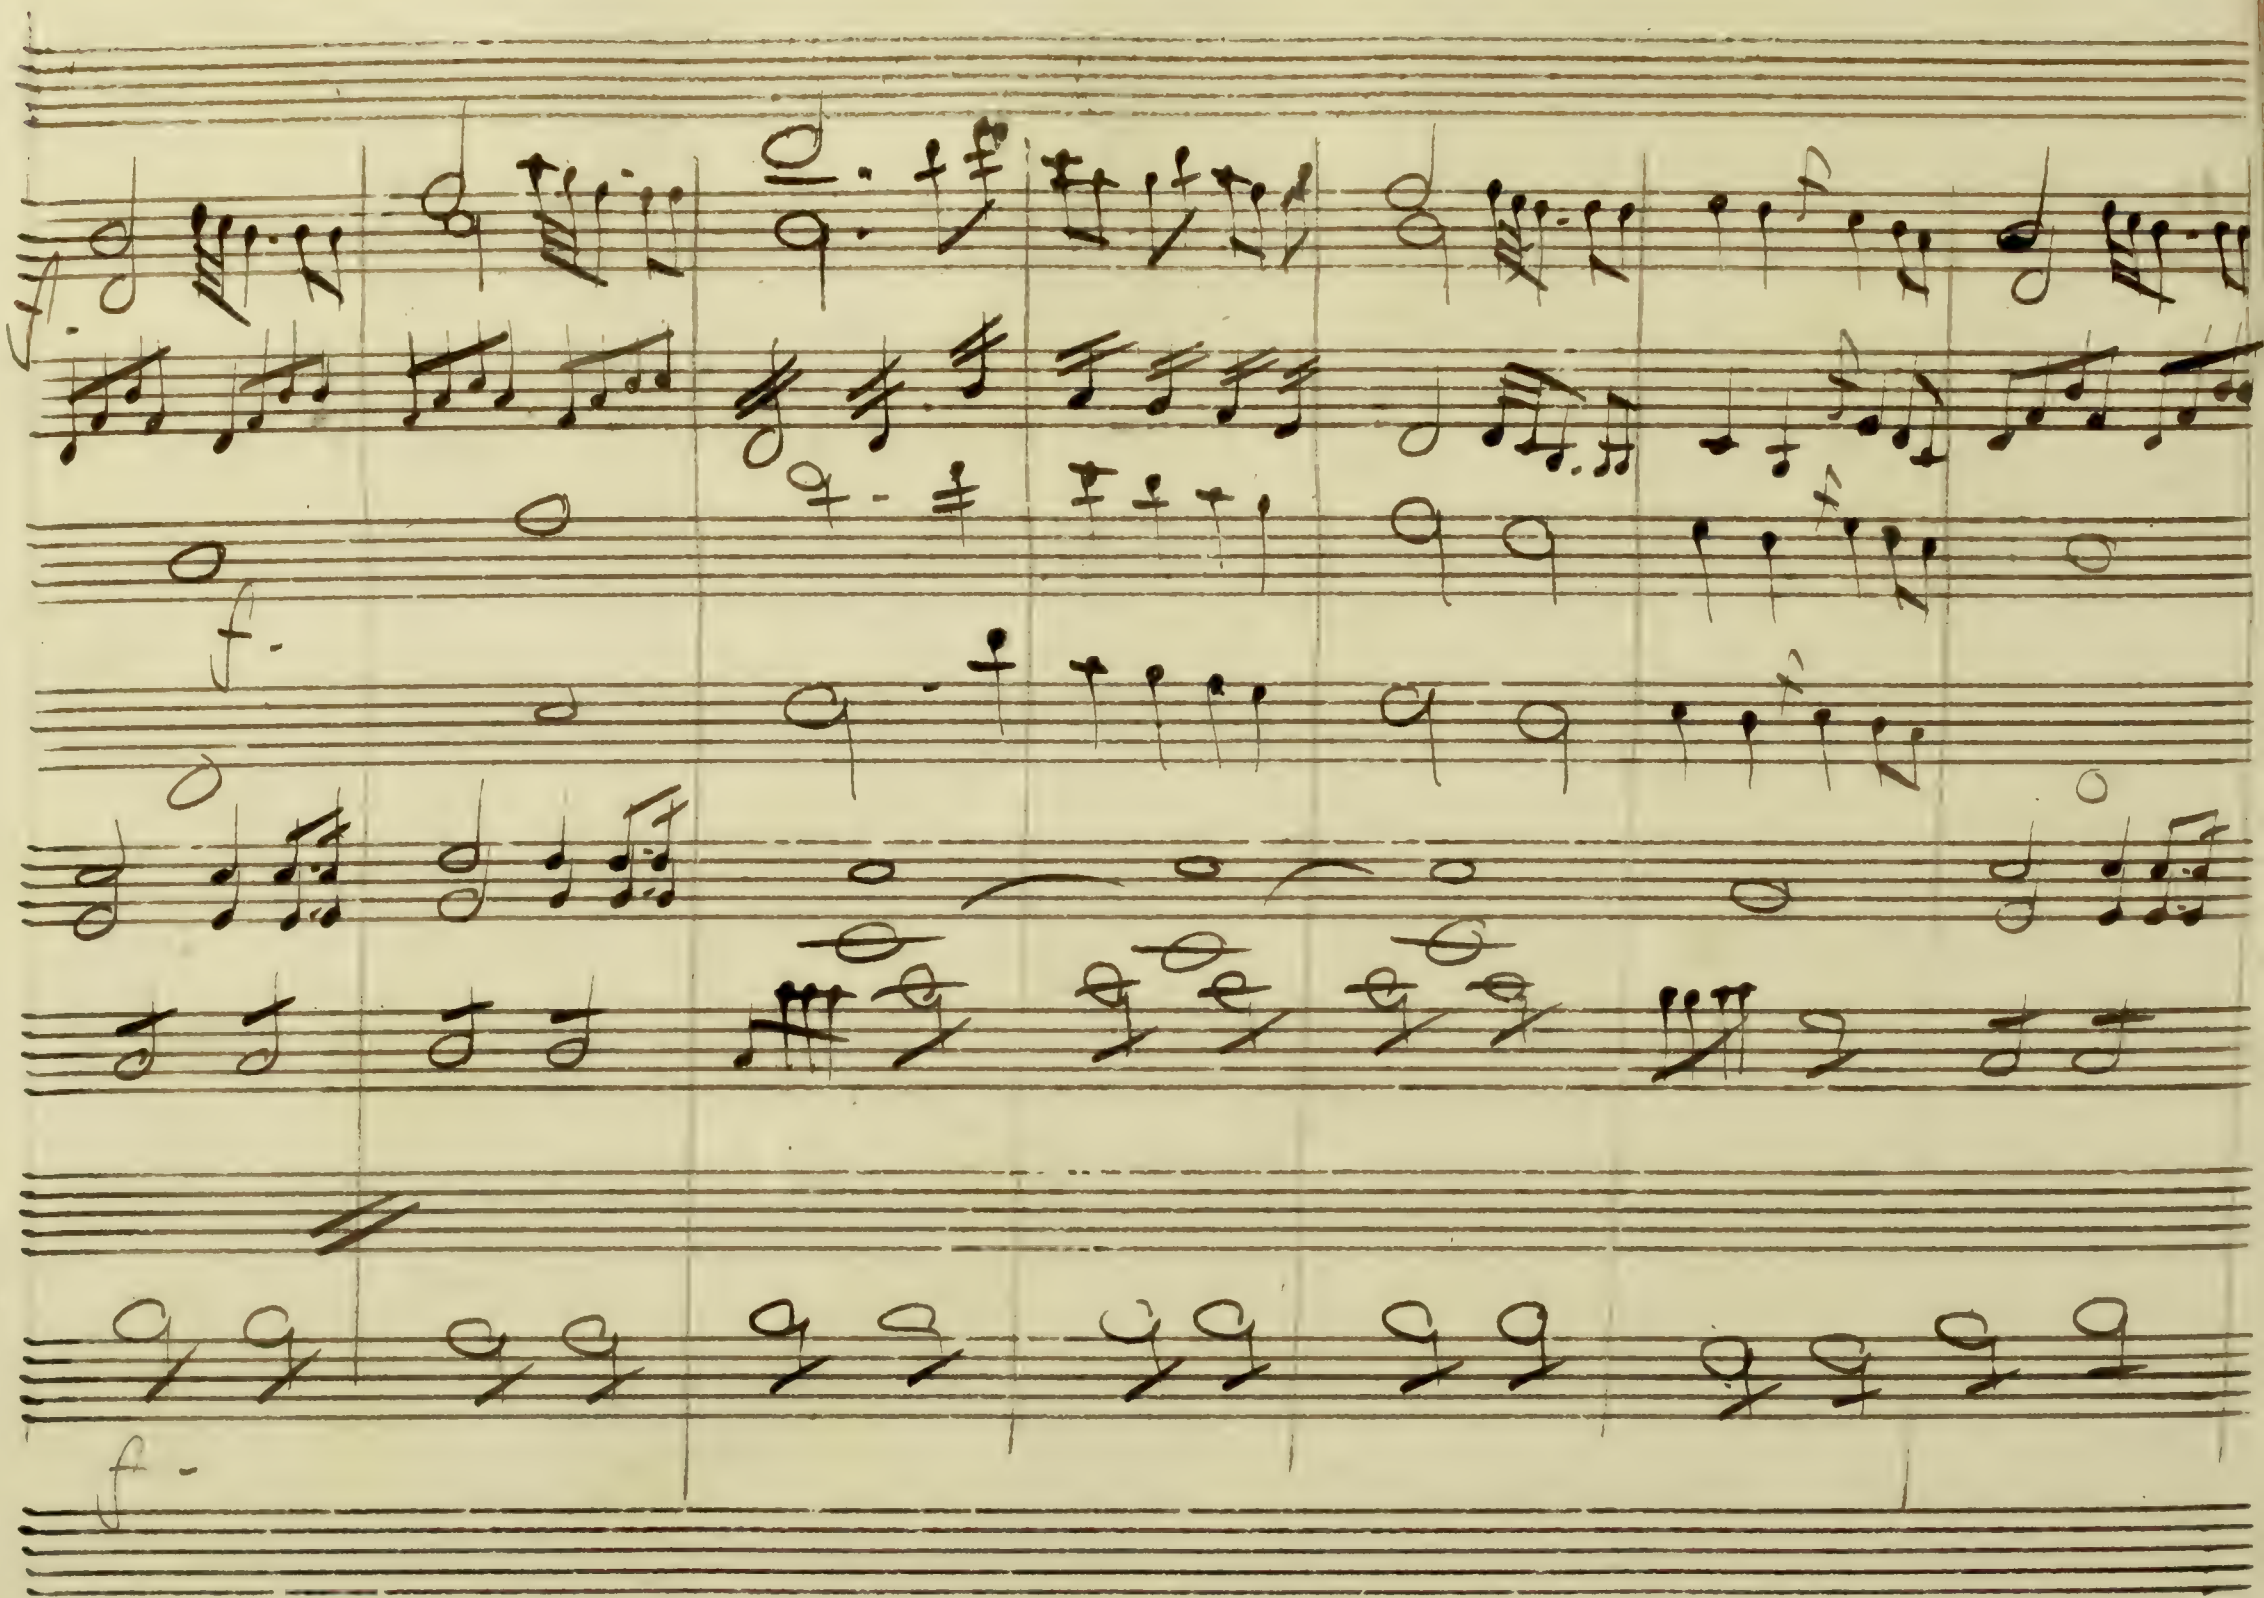 f.
f.
f.